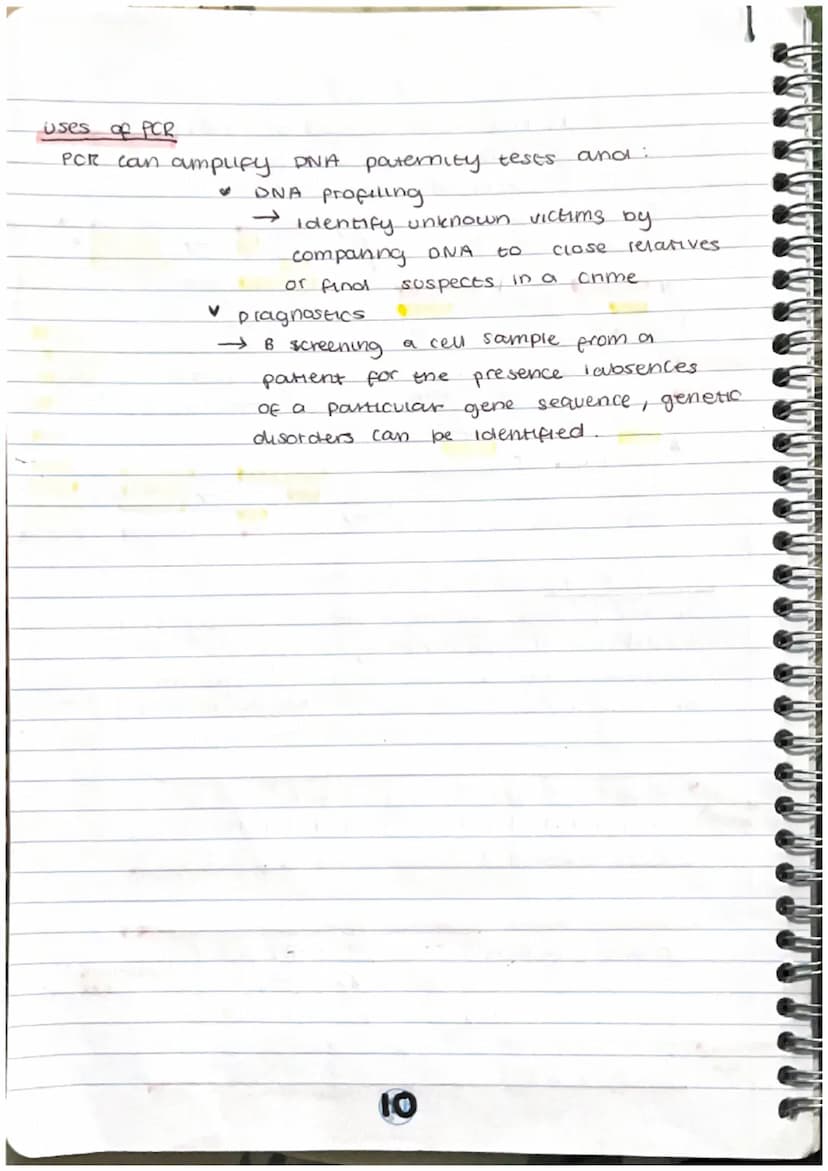 Uses of PCR
PCR can amplify DNA paternity tests and:
DNA profiling
→ Identify unknown victims by
comparing DNA to close relatives
or find suspects in a crime
Diagnostics
→ B screening a cell sample from a
patient for the presence /absences
of a particular gene sequence, genetic
disorders can be identified.
10